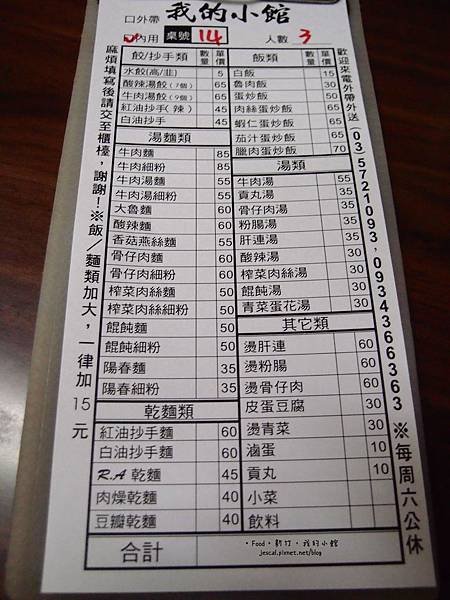 我的小館
口外帶
口內用 桌號 14 人數 3
餃/抄手類 數量 單價
水餃(高/韭) 5
酸辣湯餃(7個) 65
牛肉湯餃(9個) 65
紅油抄手(辣) 45
白油抄手 45
湯麵類
牛肉麵 85
牛肉細粉 85
牛肉湯麵 55
牛肉湯細粉 55
大魯麵 60
酸辣麵 60
香菇燕絲麵 55
骨仔肉麵 60
骨仔肉細粉 60
榨菜肉絲麵 50
榨菜肉絲細粉 50
餛飩麵 50
餛飩細粉 50
陽春麵 35
陽春細粉 35
乾麵類
紅油抄手麵 60
白油抄手麵 60
R.A 乾麵 45
肉燥乾麵 40
豆瓣乾麵 40
合計
飯類 數量 單價
白飯 15
魯肉飯 30
蛋炒飯 50
肉絲蛋炒飯 60
蝦仁蛋炒飯 60
茄汁蛋炒飯 60
臘肉蛋炒飯 70
湯類
牛肉湯 55
貢丸湯 35
骨仔肉湯 35
粉腸湯 35
肝連湯 35
酸辣湯 30
榨菜肉絲湯 30
餛飩湯 30
青菜蛋花湯 30
其它類
燙肝連 60
燙粉腸 60
燙骨仔肉 60
皮蛋豆腐 30
燙青菜 30
滷蛋 10
貢丸 10
小菜
飲料
麻煩填寫後請交至櫃檯，謝謝！※飯／麵類加大，一律加15元
歡迎來電外帶外送(03)5721093，0934366363※每周六公休
·Food·新竹·我的小館
jescal.pixnet.net/blog